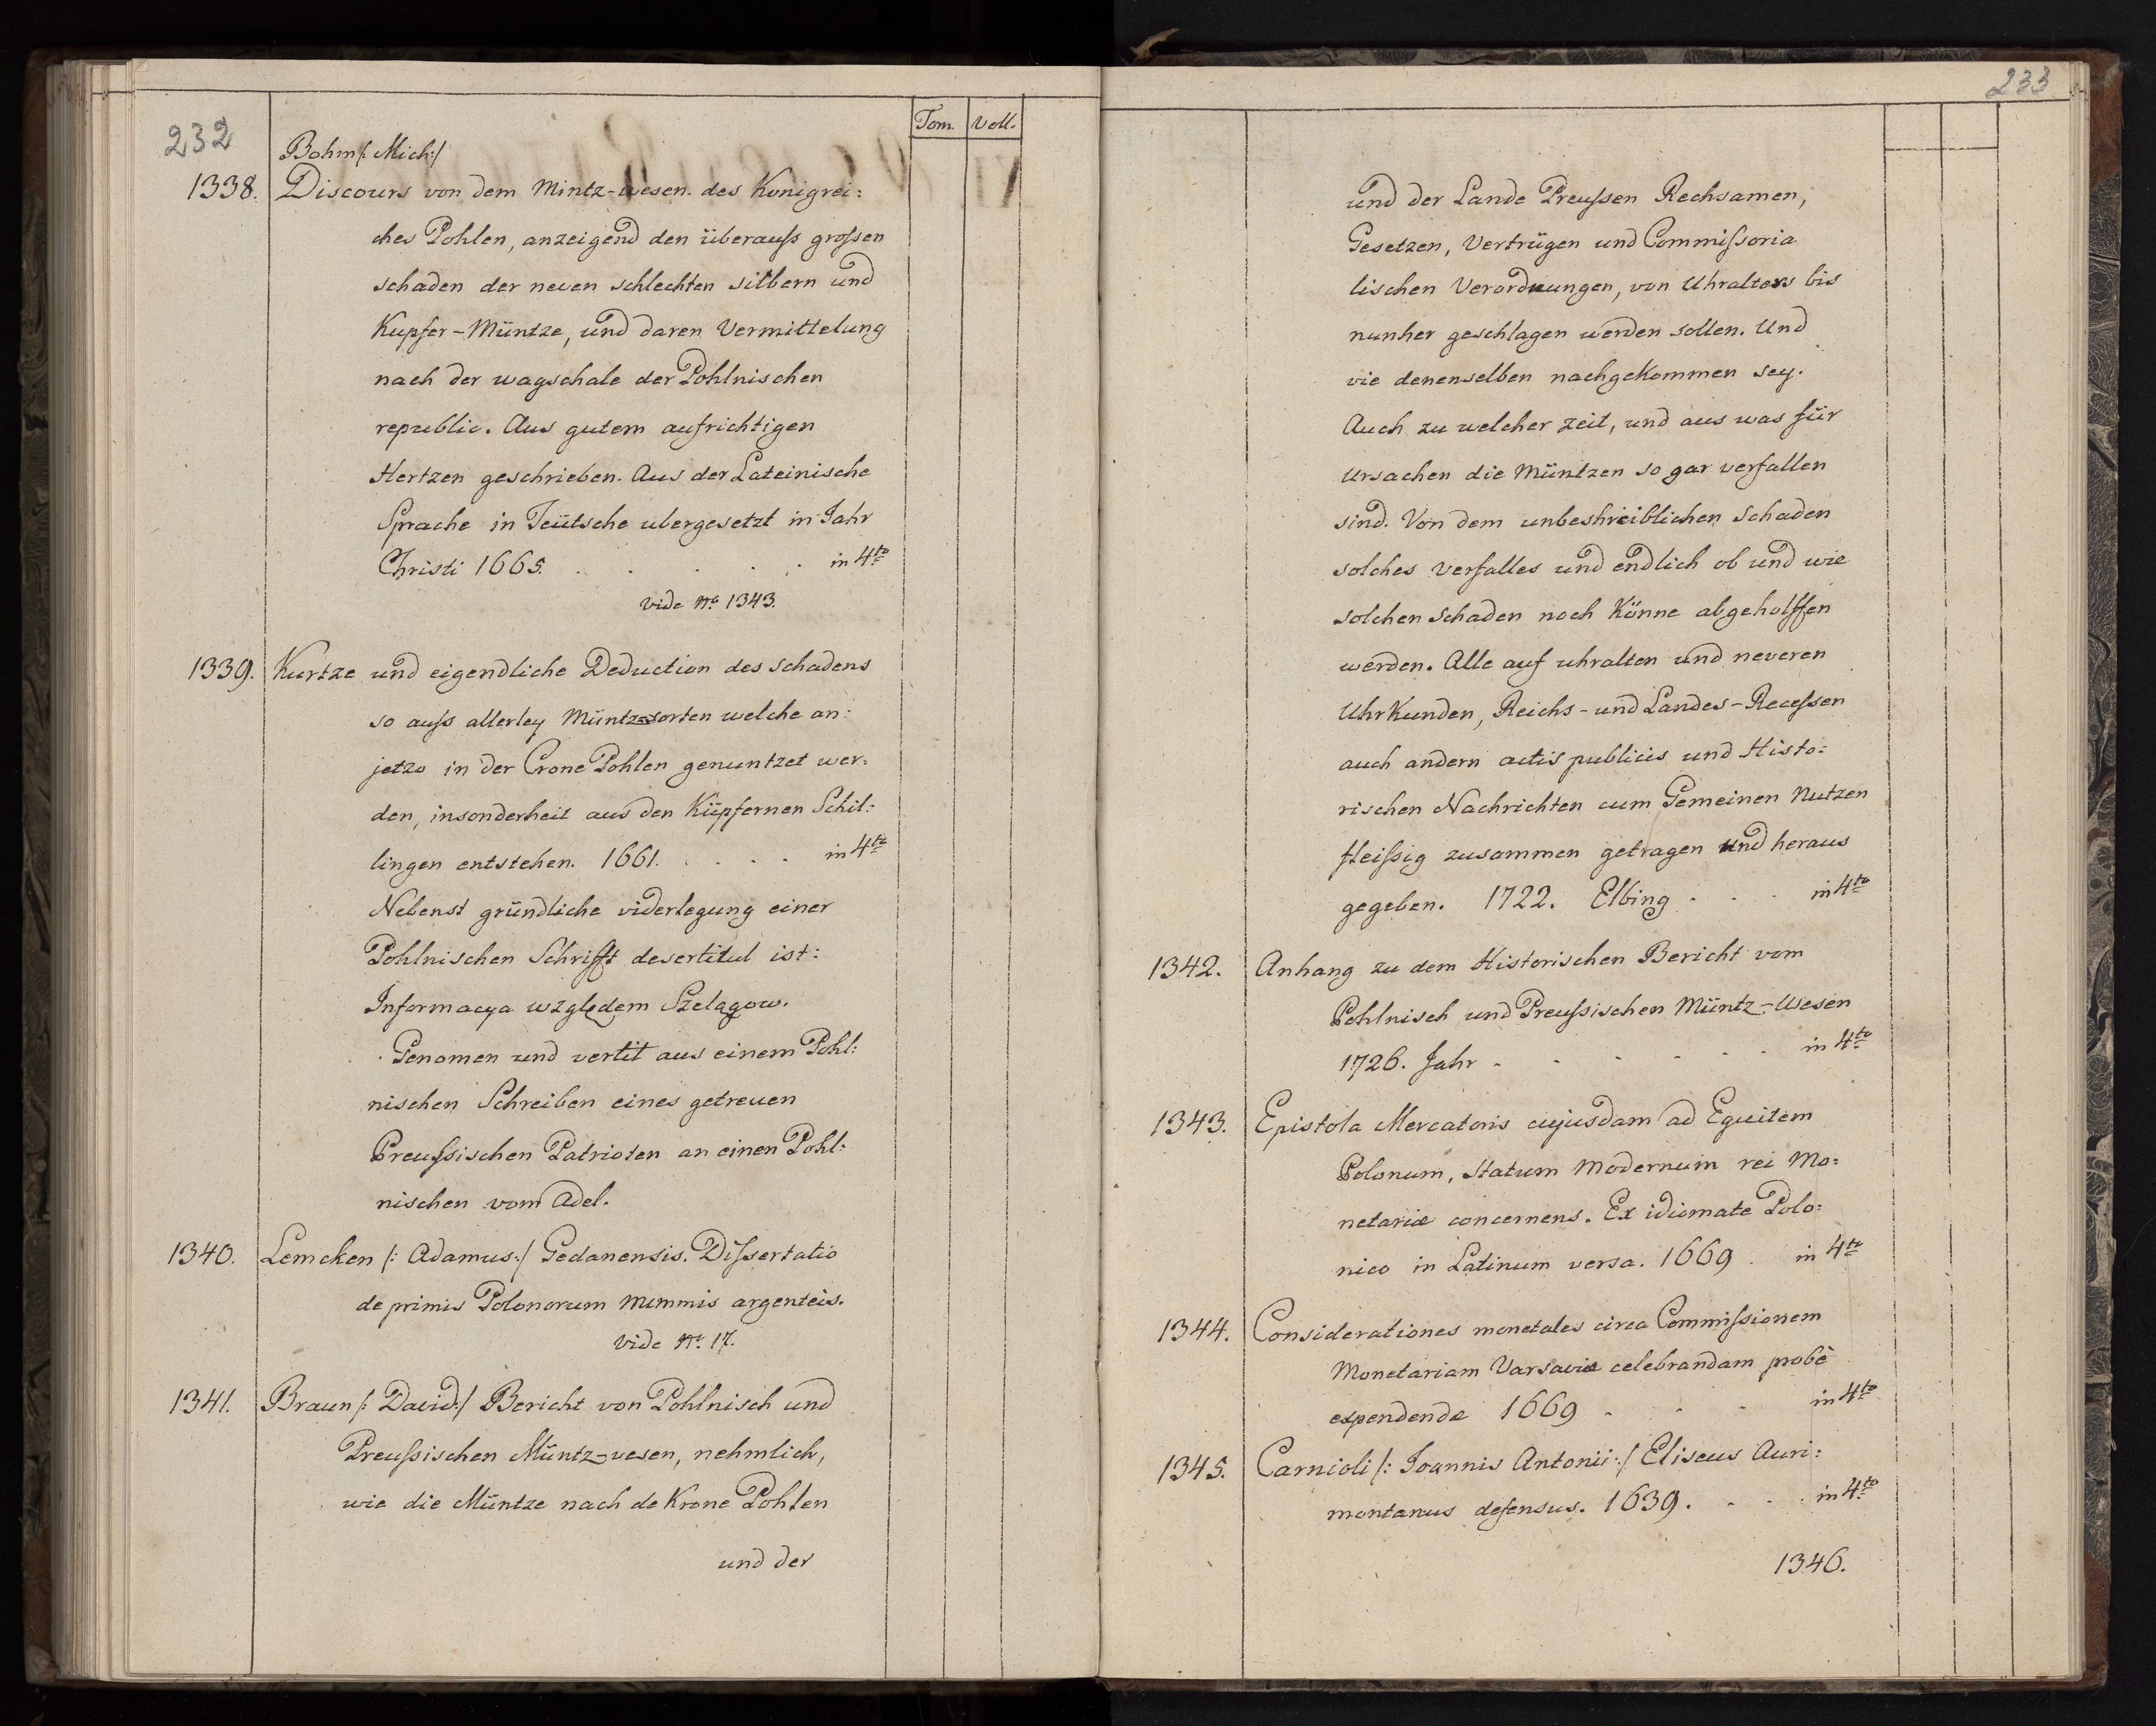 232
Tom. Voll.
Bohm /: Mich:/
1338. Discours von dem Mintz-wesen des Konigrei:
ches Pohlen, anzeigend den überauſs groſsen
schaden der neuen schlechten silbern und
Kupfer-Müntze, und daren Vermittelung
nach der wagschale der Pohlnischen
republic. Aus gutem aufrichtigen
Hertzen geschrieben. Aus der Lateinische
Sprache in Teütsche ubergesetzt in Jahr
Christi 1665. . . . . . in 4to
vide No 1343.
1339. Kurtze und eigendliche Deduction des schadens
so auſs allerley Müntz-sorten welche an:
jetzo in der Crone Pohlen genuntzet wer:
den, insonderheit aus den Küpfernen Schil:
lingen entstehen. 1661. . . . . in 4to
Nebenst gründliche viderlegung einer
Pohlnischen Schrifft desertitul ist:
Informacya względem Szelągow.
Genomen und vertit aus einem Pohl:
nischen Schreiben eines getreuen
Preuſsischen Patrioten an einen Pohl:
nischen vom Adel.
1340. Lemcken /: Adamus:/ Gedanensis. Diſsertatio
de primis Polonorum nummis argenteis.
vide No 17.
1341. Braun /: David:/ Bericht von Pohlnisch und
Preuſsischen Müntz-vesen, nehmlich,
wie die Müntze nach de Krone Pohlen
und der
233
und der Lande Preuſsen Rechsamen,
Gesetzen, Vertrügen und Commiſsoria
lischen Verordnungen, von Uhralters bis
nunher geschlagen werden sollen. Und
vie denenselben nachgekommen sey.
Auch zu welcher zeit, und aus was für
Ursachen die Müntzen so gar verfallen
sind. Von dem unbeshreiblichen Schaden
solches verfalles und endlich ob und wie
solchen Schaden noch Könne abgeholffen
werden. Alle auf uhralten und neveren
UhrKunden, Reichs- und Landes-Receſsen
auch andern actis publicis und Histo:
rischen Nachrichten cum Gemeinen Nutzen
fleiſsig zusammen getragen und heraus
gegeben. 1722. Elbing . . . in 4to
1342. Anhang zu dem Historischen Bericht vom
Pohlnisch und Preuſsischen Müntz-Wesen
1726. Jahr - - - - - - in 4to
1343. Epistola Mercatoris cujusdam ad Equitem
Polonum, Statum Modernum rei Mo:
netariæ concernens. Ex idiomate Polo:
nico in Latinum versa. 1669 . in 4to
1344. Considerationes monetales circa Commiſsionem
Monetariam Varsaviæ celebrandam probè
expendendæ 1669 - - - in 4to
1345. Carnioli /: Joannis Antonii:/ Eliseus Auri:
montanus defensus. 1639. - - . in 4to
1346.